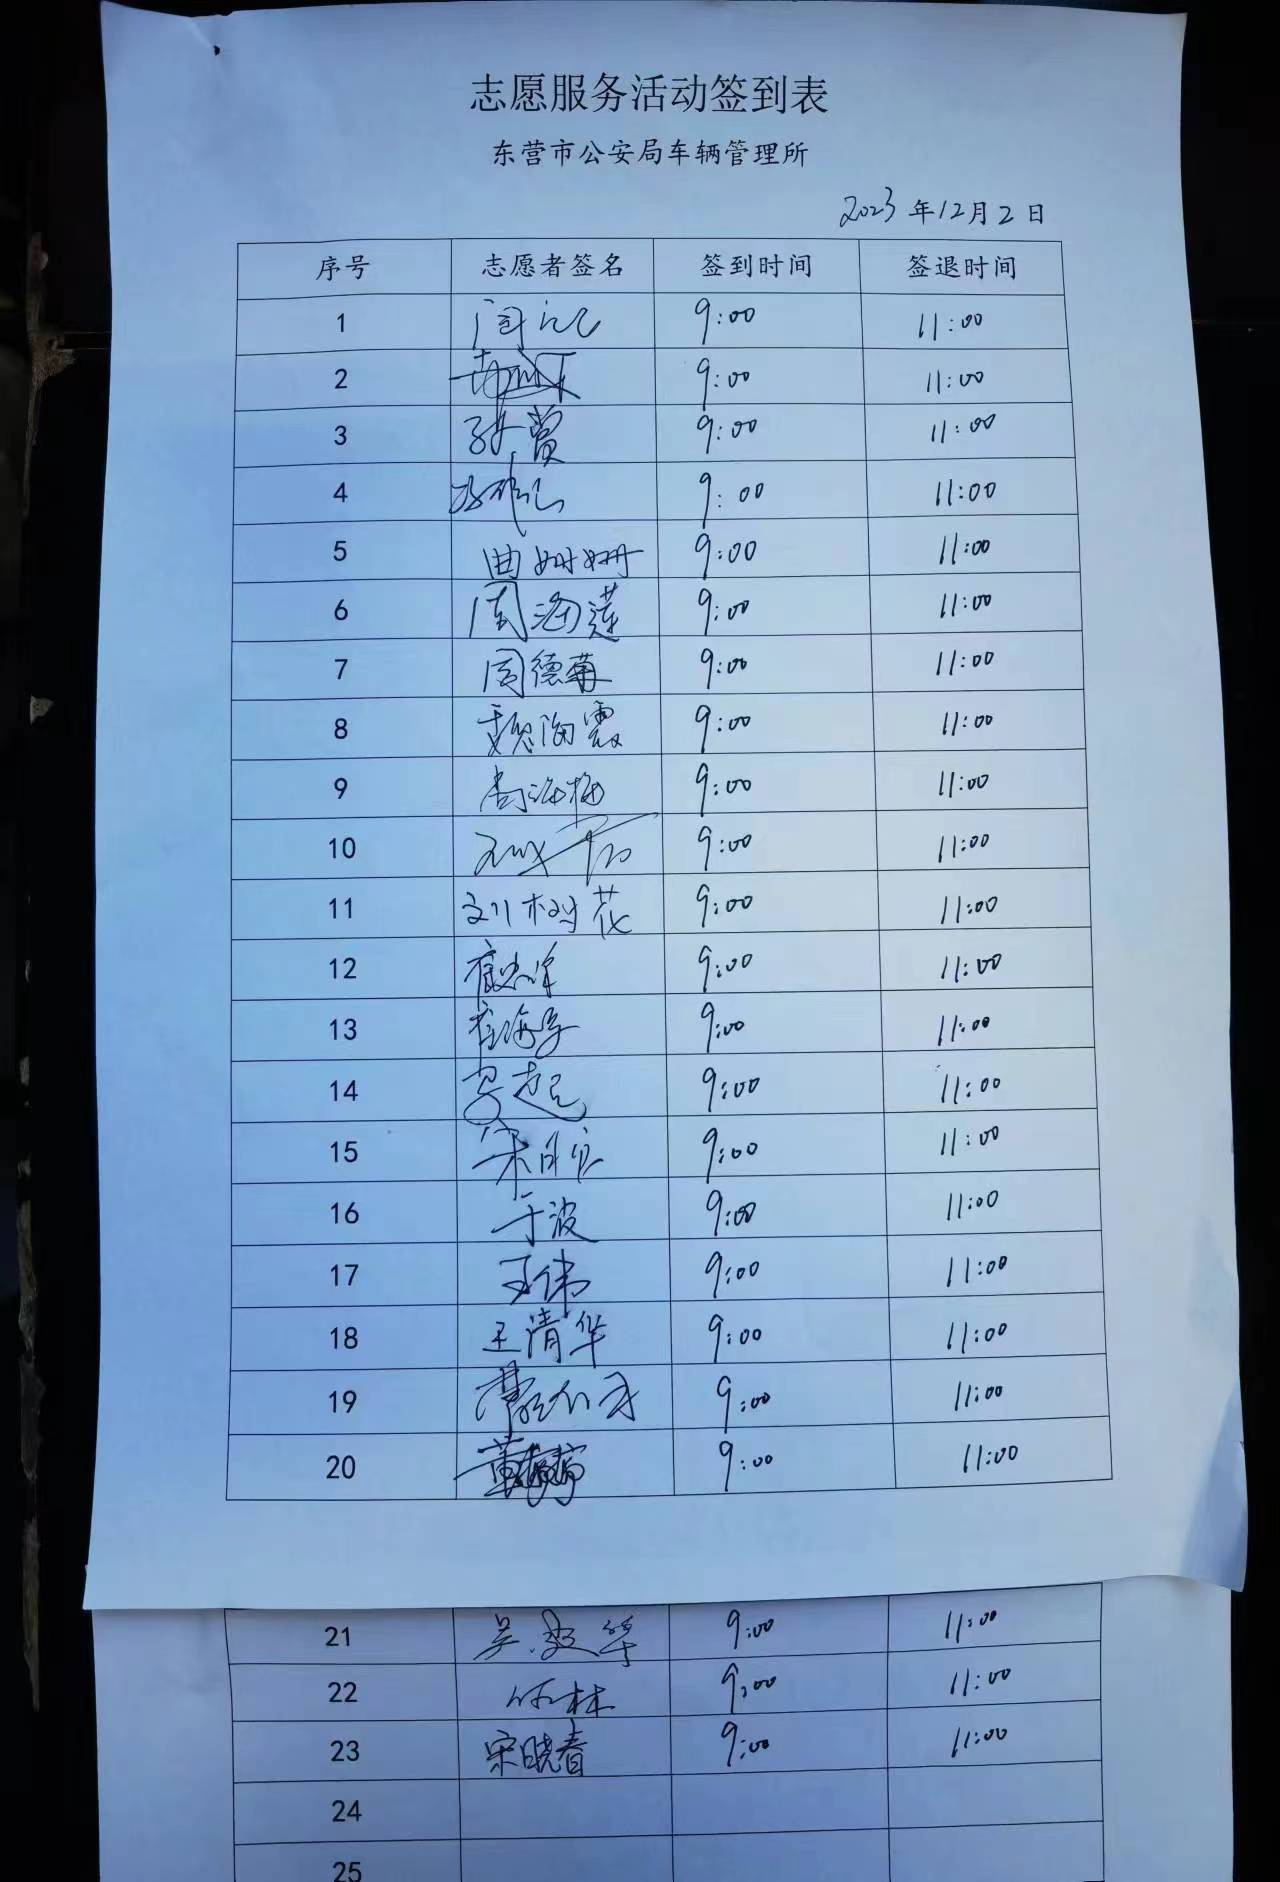 志愿服务活动签到表
东营市公安局车辆管理所
2023年12月2日
序号 志愿者签名 签到时间 签退时间
1 9:00 11:00
2 9:00 11:00
3 9:00 11:00
4 9:00 11:00
5 曲姗姗 9:00 11:00
6 周海莲 9:00 11:00
7 周德菊 9:00 11:00
8 魏海霞 9:00 11:00
9 尚海梅 9:00 11:00
10 9:00 11:00
11 刘树花 9:00 11:00
12 9:00 11:00
13 9:00 11:00
14 9:00 11:00
15 9:00 11:00
16 于波 9:00 11:00
17 王伟 9:00 11:00
18 王清华 9:00 11:00
19 9:00 11:00
20 9:00 11:00
21 9:00 11:00
22 9:00 11:00
23 宋晓春 9:00 11:00
24
25